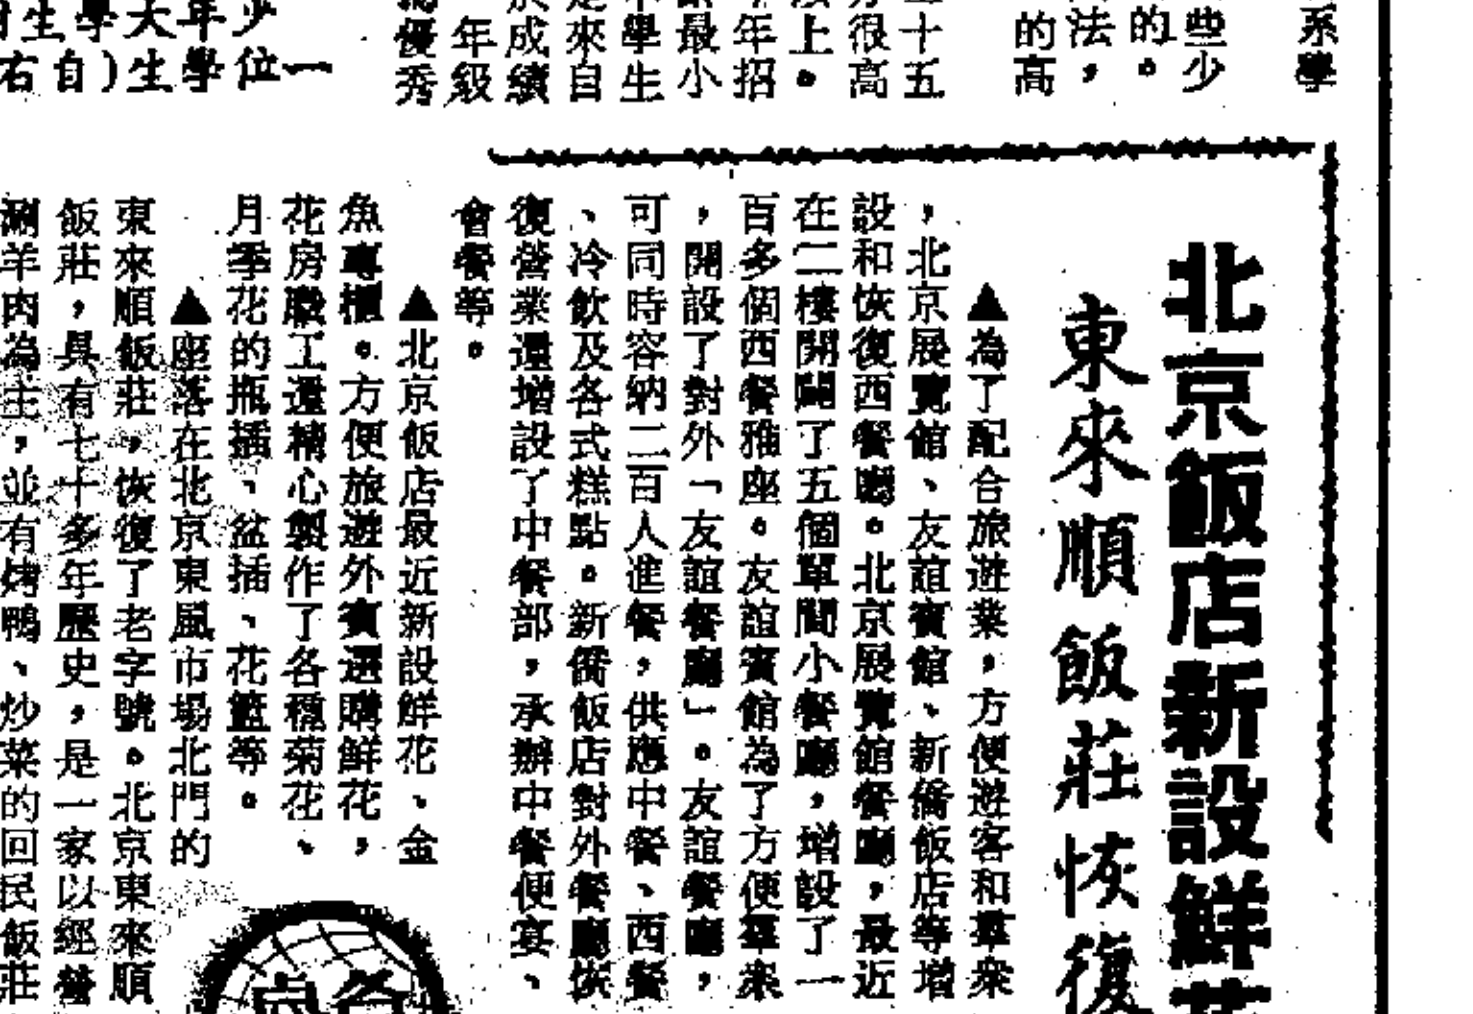 系學
些少
的。
法，
的高
十五
很高
上。
年招
最小
學生
來自
成績
年級
優秀
少年大學生
一位學生（自右
北京飯店新設鮮
東來順飯莊恢復
▲為了配合旅遊業，方便遊客和羣衆
，北京展覽館、友誼賓館、新僑飯店等增
設和恢復西餐廳。北京展覽館餐廳，最近
在二樓開闢了五個單間小餐廳，增設了一
百多個西餐雅座。友誼賓館為了方便羣衆
，開設了對外「友誼餐廳」。友誼餐廳，
可同時容納二百人進餐，供應中餐、西餐
、冷飲及各式糕點。新僑飯店對外餐廳恢
復營業還增設了中餐部，承辦中餐便宴、
會餐等。
▲北京飯店最近新設鮮花、金
魚專櫃。方便旅遊外賓選購鮮花，
花房職工還精心製作了各種菊花、
月季花的瓶插、盆插、花籃等。
▲座落在北京東風市場北門的
東來順飯莊，恢復了老字號。北京東來順
飯莊，具有七十多年歷史，是一家以經營
涮羊肉為主，並有烤鴨、炒菜的回民飯莊